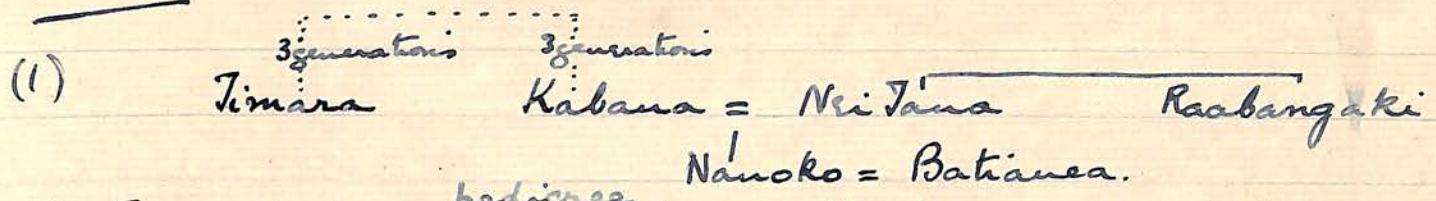 3 generations 3 generations
(1) Timara Kabana = Nei Tana Raabangaki
Nanoko = Batianea.
pedigree